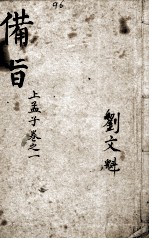 96
備旨
上孟子卷之一
劉文魁